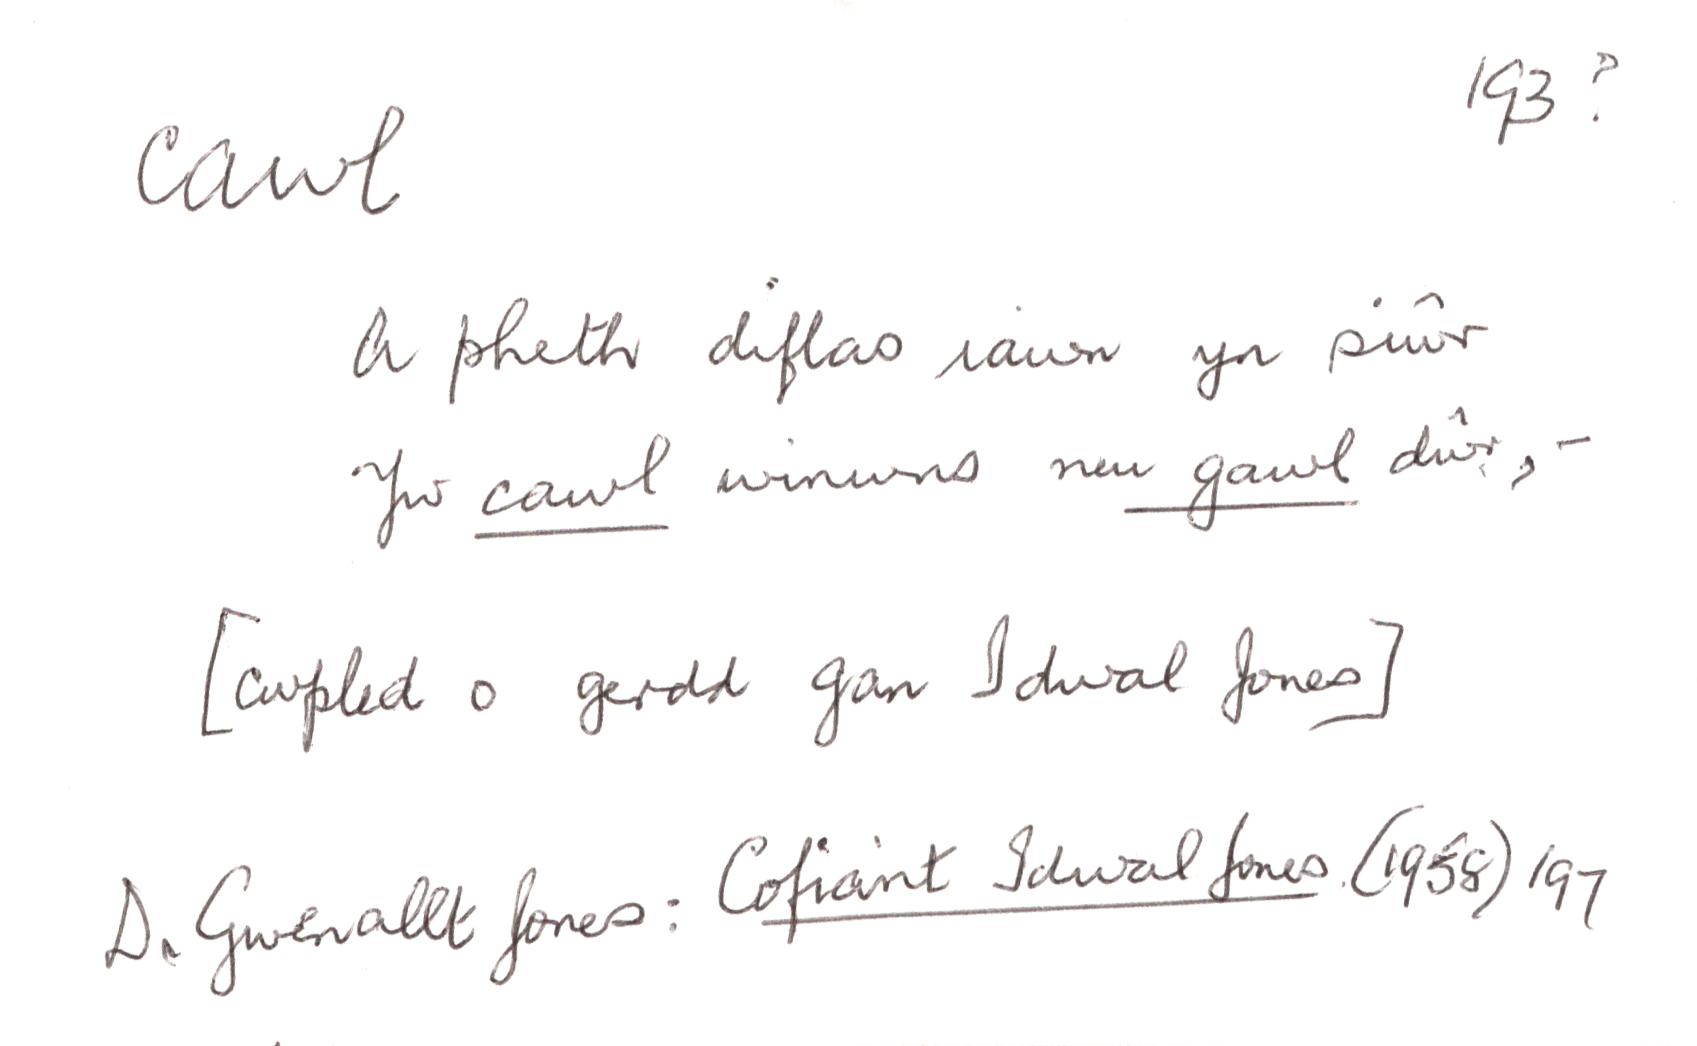 193?
cawl
A pheth diflas iawn yn siŵr
Yw cawl winwns neu gawl dŵr, -
[cwpled o gerdd gan Idwal Jones]
D. Gwenallt Jones: Cofiant Idwal Jones (1958) 197